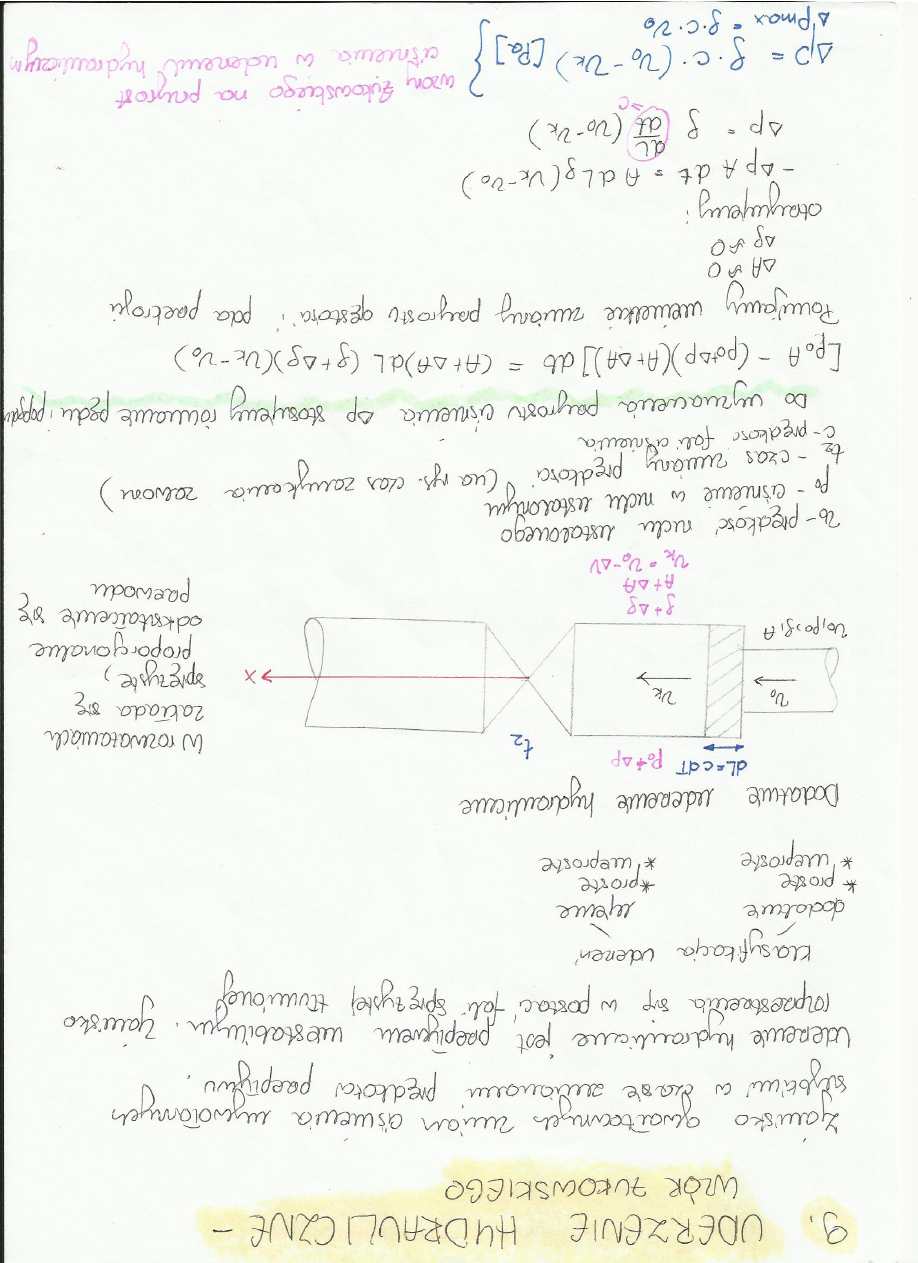 9. UDERZENIE HYDRAULICZNE –
WZÓR ŻUKOWSKIEGO
Zjawisko gwałtownych zmian ciśnienia wywołanych
szybkimi w czasie zmianami prędkości przepływu.
Uderzenie hydrauliczne jest przepływem niestabilnym. Zjawisko
rozprzestrzenia się w postaci fali sprężystej tłumionej
klasyfikacja uderzeń
dodatnie ujemne
* proste * proste
* nieproste * nieproste
Dodatnie uderzenie hydrauliczne
dL=cdT p₀+Δp
t₂
v₀ vₖ x
v₀, p₀, ρ, A
ρ+Δρ
A+ΔA
vₖ = v₀-Δv
W rozważaniach
zakłada się
sprężyste)
proporcjonalne
odkształcenie się
przewodu
v₀ - prędkość ruchu ustalonego
p₀ - ciśnienie w ruchu ustalonym
t₂ - czas zmiany prędkości (na rys. czas zamykania zaworu)
c - prędkość fali ciśnienia
Do wyznaczenia przyrostu ciśnienia Δp stosujemy równanie pędu i popędu
[p₀A - (p₀+Δp)(A+ΔA)] dt = (A+ΔA)dL (ρ+Δρ)(vₖ-v₀)
Pomijamy niewielkie zmiany przyrostu gęstości i pola przekroju
ΔA ≈ 0
Δρ ≈ 0
otrzymujemy:
- Δp A dt = A dL ρ (vₖ-v₀)
Δp = ρ dL/dt (v₀-vₖ)
=c
Δp = ρ·c·(v₀-vₖ) [Pa]
Δpmax = ρ·c·v₀
wzory Żukowskiego na przyrost
ciśnienia w uderzeniu hydraulicznym